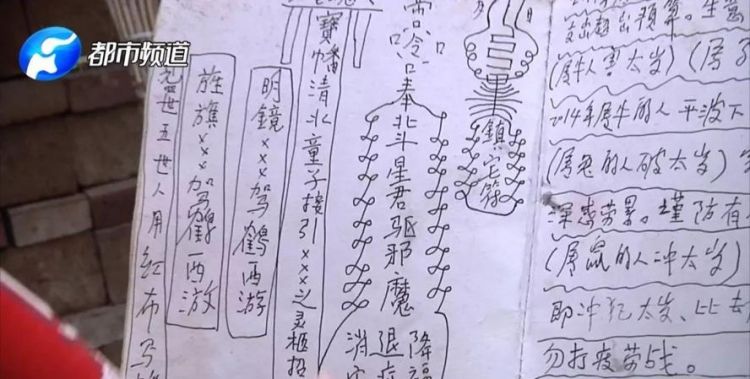 都市频道
世五世人用红布写
旌旗×××驾鹤西游
明鏡×××驾鹤西游
寶幡清北童子接引×××之灵柩招
唵奉北斗星君驱邪魔
消
退
降福
鎮宅符
支出超出预算。生
(属牛人害太岁)(属
2014年属牛的人平波下
(属兔的人破太岁)
深感劳累。谨防有
(属鼠的人冲太岁)
即冲犯太岁、比去
勿打疲劳战。